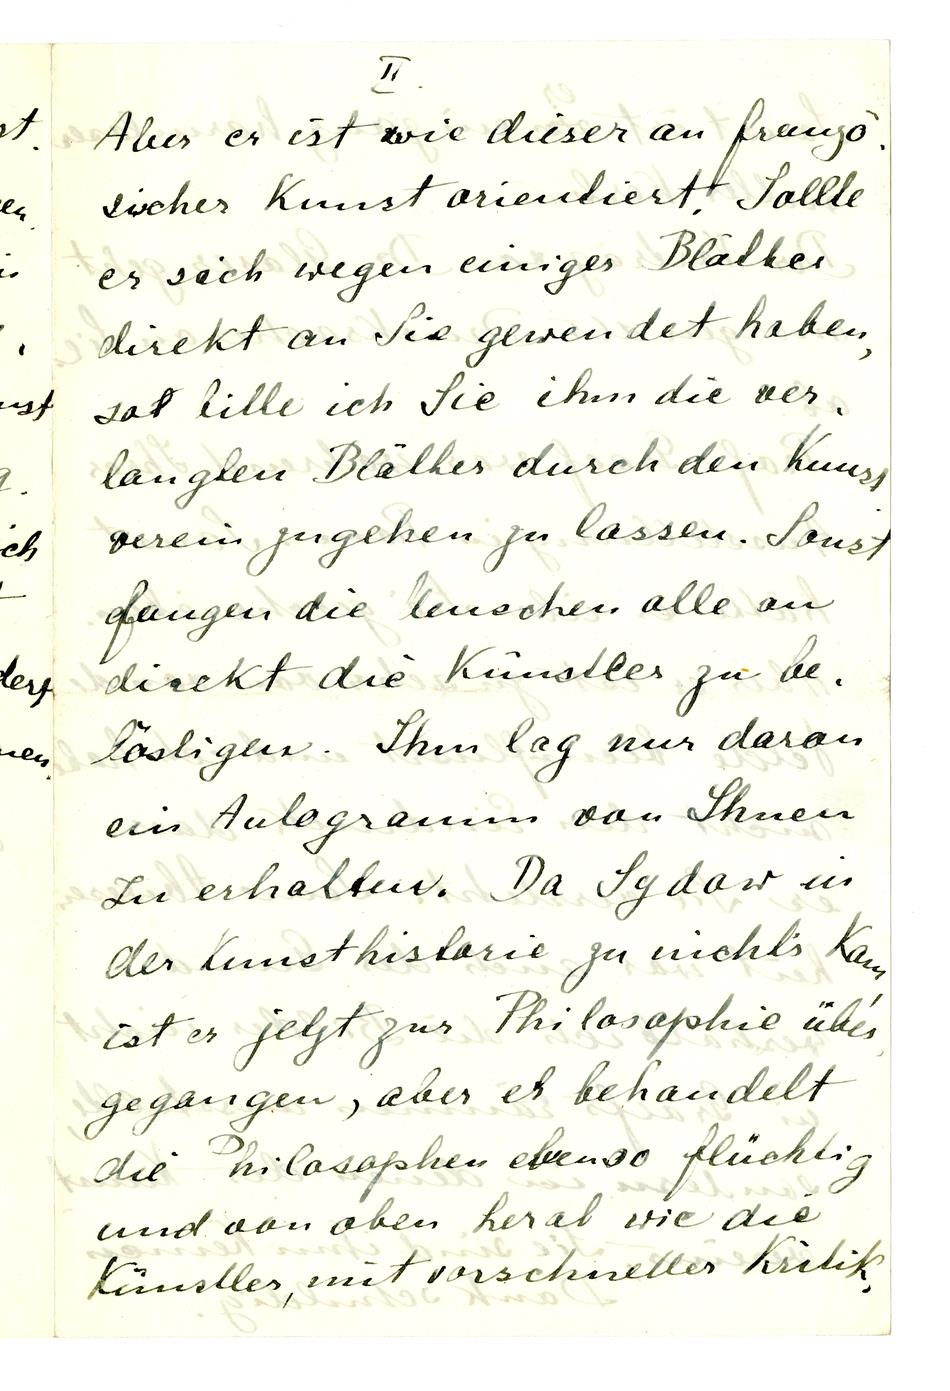 II.
Aber er ist wie dieser an franzö-
sischer Kunst orientiert! Sollte
er sich wegen einiger Blätter
direkt an Sie gewendet haben,
so bitte ich Sie ihm die ver-
langten Blätter durch den Kunst
verein zugehen zu lassen. Sonst
fangen die Menschen alle an
direkt die Künstler zu be-
lästigen. Ihm lag nur daran
ein Autogramm von Ihnen
zu erhalten. Da Sydow in
der Kunsthistorie zu nichts kam
ist er jetzt zur Philosophie über
gegangen, aber er behandelt
die Philosophen ebenso flüchtig
und von oben herab wie die
Künstler, mit vorschneller Kritik,